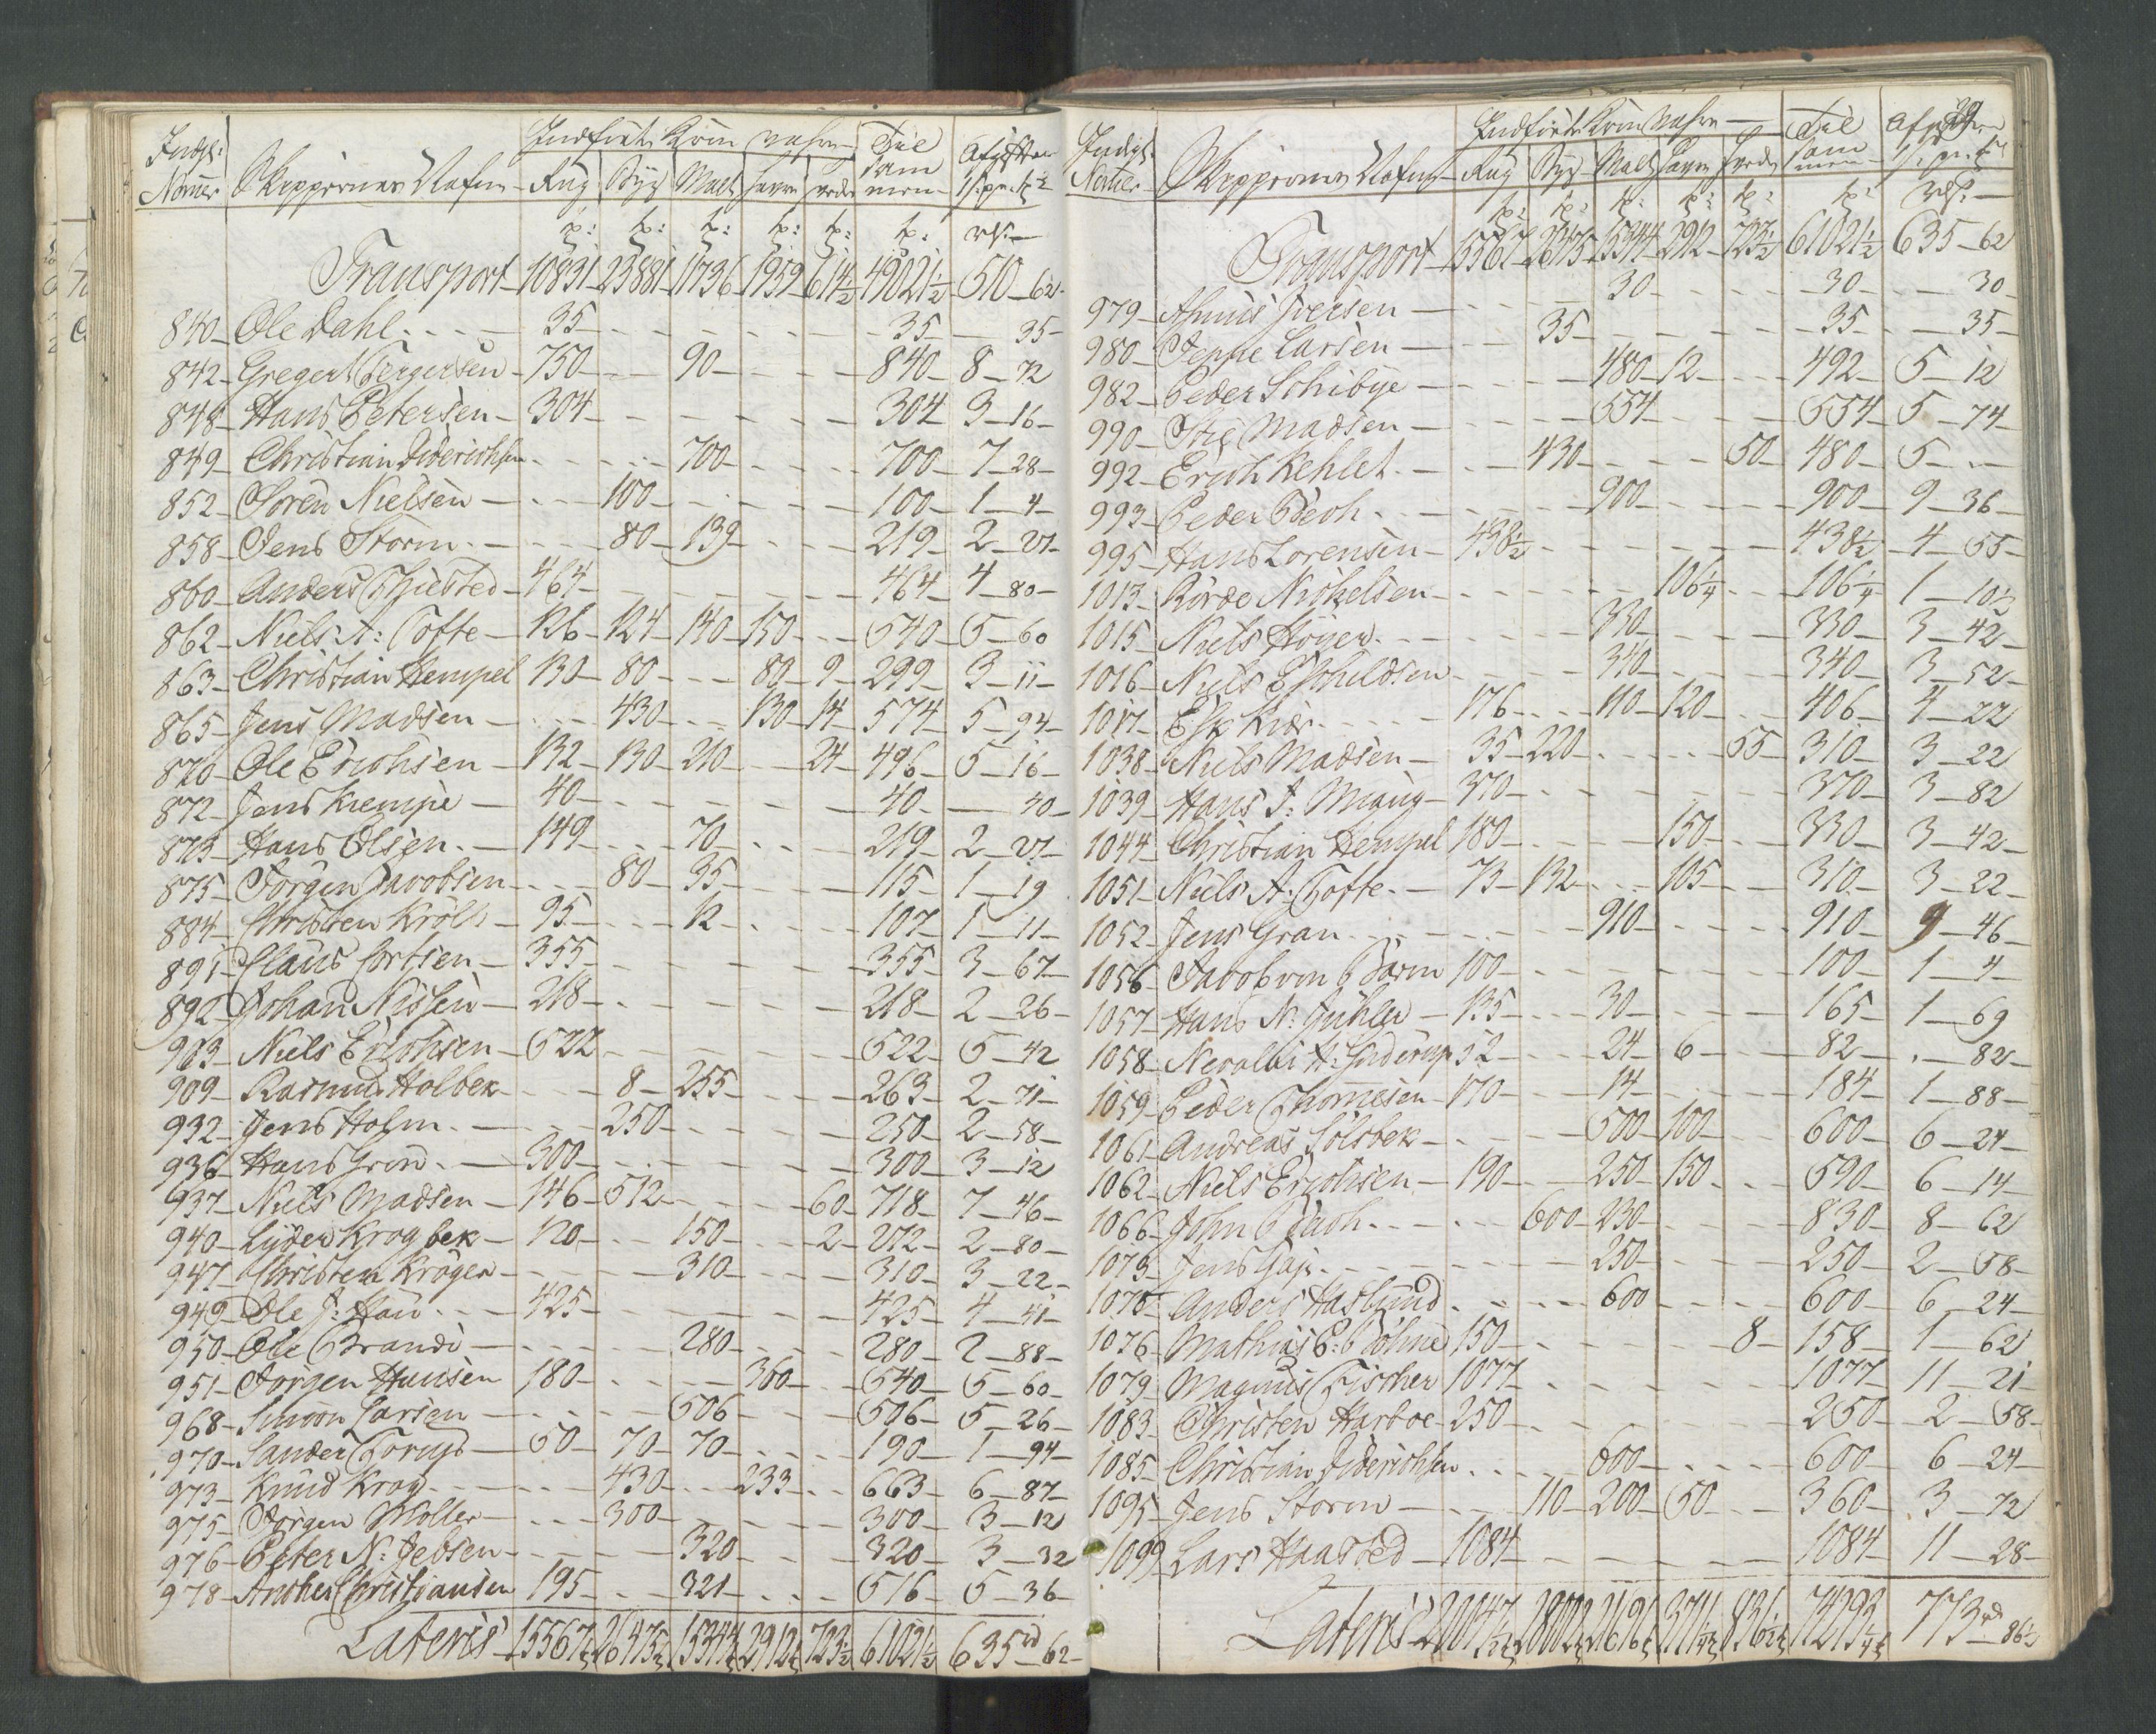 Indførte Korn vahre
Nomer Skippernes Nafne Rug Byg Malt Havre Til sammen Afgiften
Transport 10831 23881 11736 1959 614½ 49021½ 510 62
840 Ole Dahl 35 35 35
842 Gregert Gregersen 750 90 840 8 72
848 Hans Petersen 304 304 3 16
849 Christian Diderichsen 700 700 7 28
852 Søren Nielsen 100 100 1 4
858 Jens Storm 80 139 219 2 27
860 Anders Thisted 464 464 4 80
862 Niels A: Tofte 126 124 140 150 540 5 60
863 Christian Hempel 130 80 80 9 299 3 11
865 Jens Madsen 430 130 14 574 5 94
870 Ole Erichsen 132 130 210 24 496 5 16
872 Jens Kiempe 40 40 40
873 Hans Olsen 149 70 219 2 27
875 Jörgen Jacobsen 80 35 115 1 19
884 Christen Kröll 95 12 107 1 11
891 Claus Cortsen 355 355 3 67
892 Johan Nissen 218 218 2 26
903 Niels Erichsen 522 522 5 42
909 Rasmus Holbek 8 255 263 2 71
932 Jens Holm 250 250 2 58
936 Hans Grön 300 300 3 12
937 Niels Madsen 146 512 60 718 7 46
940 Lyder Krogbek 120 150 2 272 2 80
947 Christen Kröger 310 310 3 22
949 Ole J: Hau 425 425 4 41
950 Ole Brandi 280 280 2 88
951 Jörgen Hansen 180 360 540 5 60
968 Simon Larsen 506 506 5 26
970 Sander Torup 50 70 70 190 1 94
973 Knud Krag 430 233 663 6 87
975 Jörgen Möller 300 300 3 12
976 Peter N: Jebsen 320 320 3 32
978 Ancher Christiansen 195 321 516 5 36
Lateris 15567 26475 15344 2912 723½ 61021½ 635 rd 62
29
Indførte Korn Vahre
Nomer Skippernes Nafne Rug Byg Malt Havre Til sammen Afgiften
Transport 15567 26475 15344 2912 723½ 61021½ 635 62
979 Asmus Iversen 30 30 30
980 Jeppe Larsen 35 35 35
982 Peder Schibye 480 12 492 5 12
990 Stie Madsen 554 554 5 74
992 Erich Kehlet 430 50 480 5
993 Peder Bech 900 900 9 36
995 Hans Lorensen 438½ 438½ 4 55
1013 Nichelsen 106¼ 106¼ 1 10½
1015 Niels Höyer 330 330 3 42
1016 Niels Eskeldsen 340 340 3 52
1017 176 110 120 406 4 22
1038 Niels Madsen 35 220 55 310 3 22
1039 Hans J: Maug 370 370 3 82
1044 Christian Hempel 180 150 330 3 42
1051 Niels A: Tofte 73 132 105 310 3 22
1052 Jens Gran 910 910 9 46
1056 Jacob von 100 100 1 4
1057 Hans N: Juhler 135 30 165 1 69
1058 52 24 6 82 82
1059 Peder Thomesen 170 14 184 1 88
1061 Andreas Solsbek 500 100 600 6 24
1062 Niels Erichsen 190 250 150 590 6 14
1066 John Bech 600 230 830 8 62
1073 Jens 250 250 2 58
1075 Anders Haslund 600 600 6 24
1076 Mathias P: Böhme 150 8 158 1 62
1079 Magnus Fischer 1077 1077 11 21
1083 Christen Harboe 250 250 2 58
1085 Christian Diderichsen 600 600 6 24
1095 Jens Storm 110 200 50 360 3 72
1099 Lars Haasted 1084 1084 11 28
Lateris 28002 831½ 74293¼ 773 rd 86½